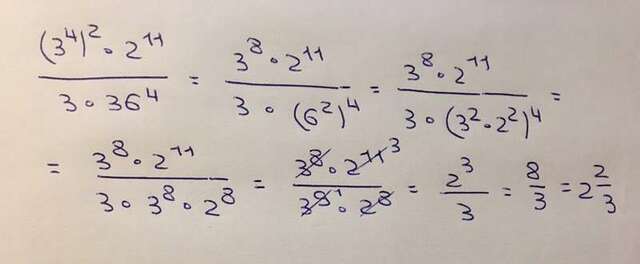 (3⁴)² • 2¹¹ / 3 • 36⁴ = 3⁸ • 2¹¹ / 3 • (6²)⁴ = 3⁸ • 2¹¹ / 3 • (3² • 2²)⁴ =
= 3⁸ • 2¹¹ / 3 • 3⁸ • 2⁸ = 3⁸ • 2¹¹ ³ / 3⁹ ¹ • 2⁸ = 2³ / 3 = 8/3 = 2 2/3